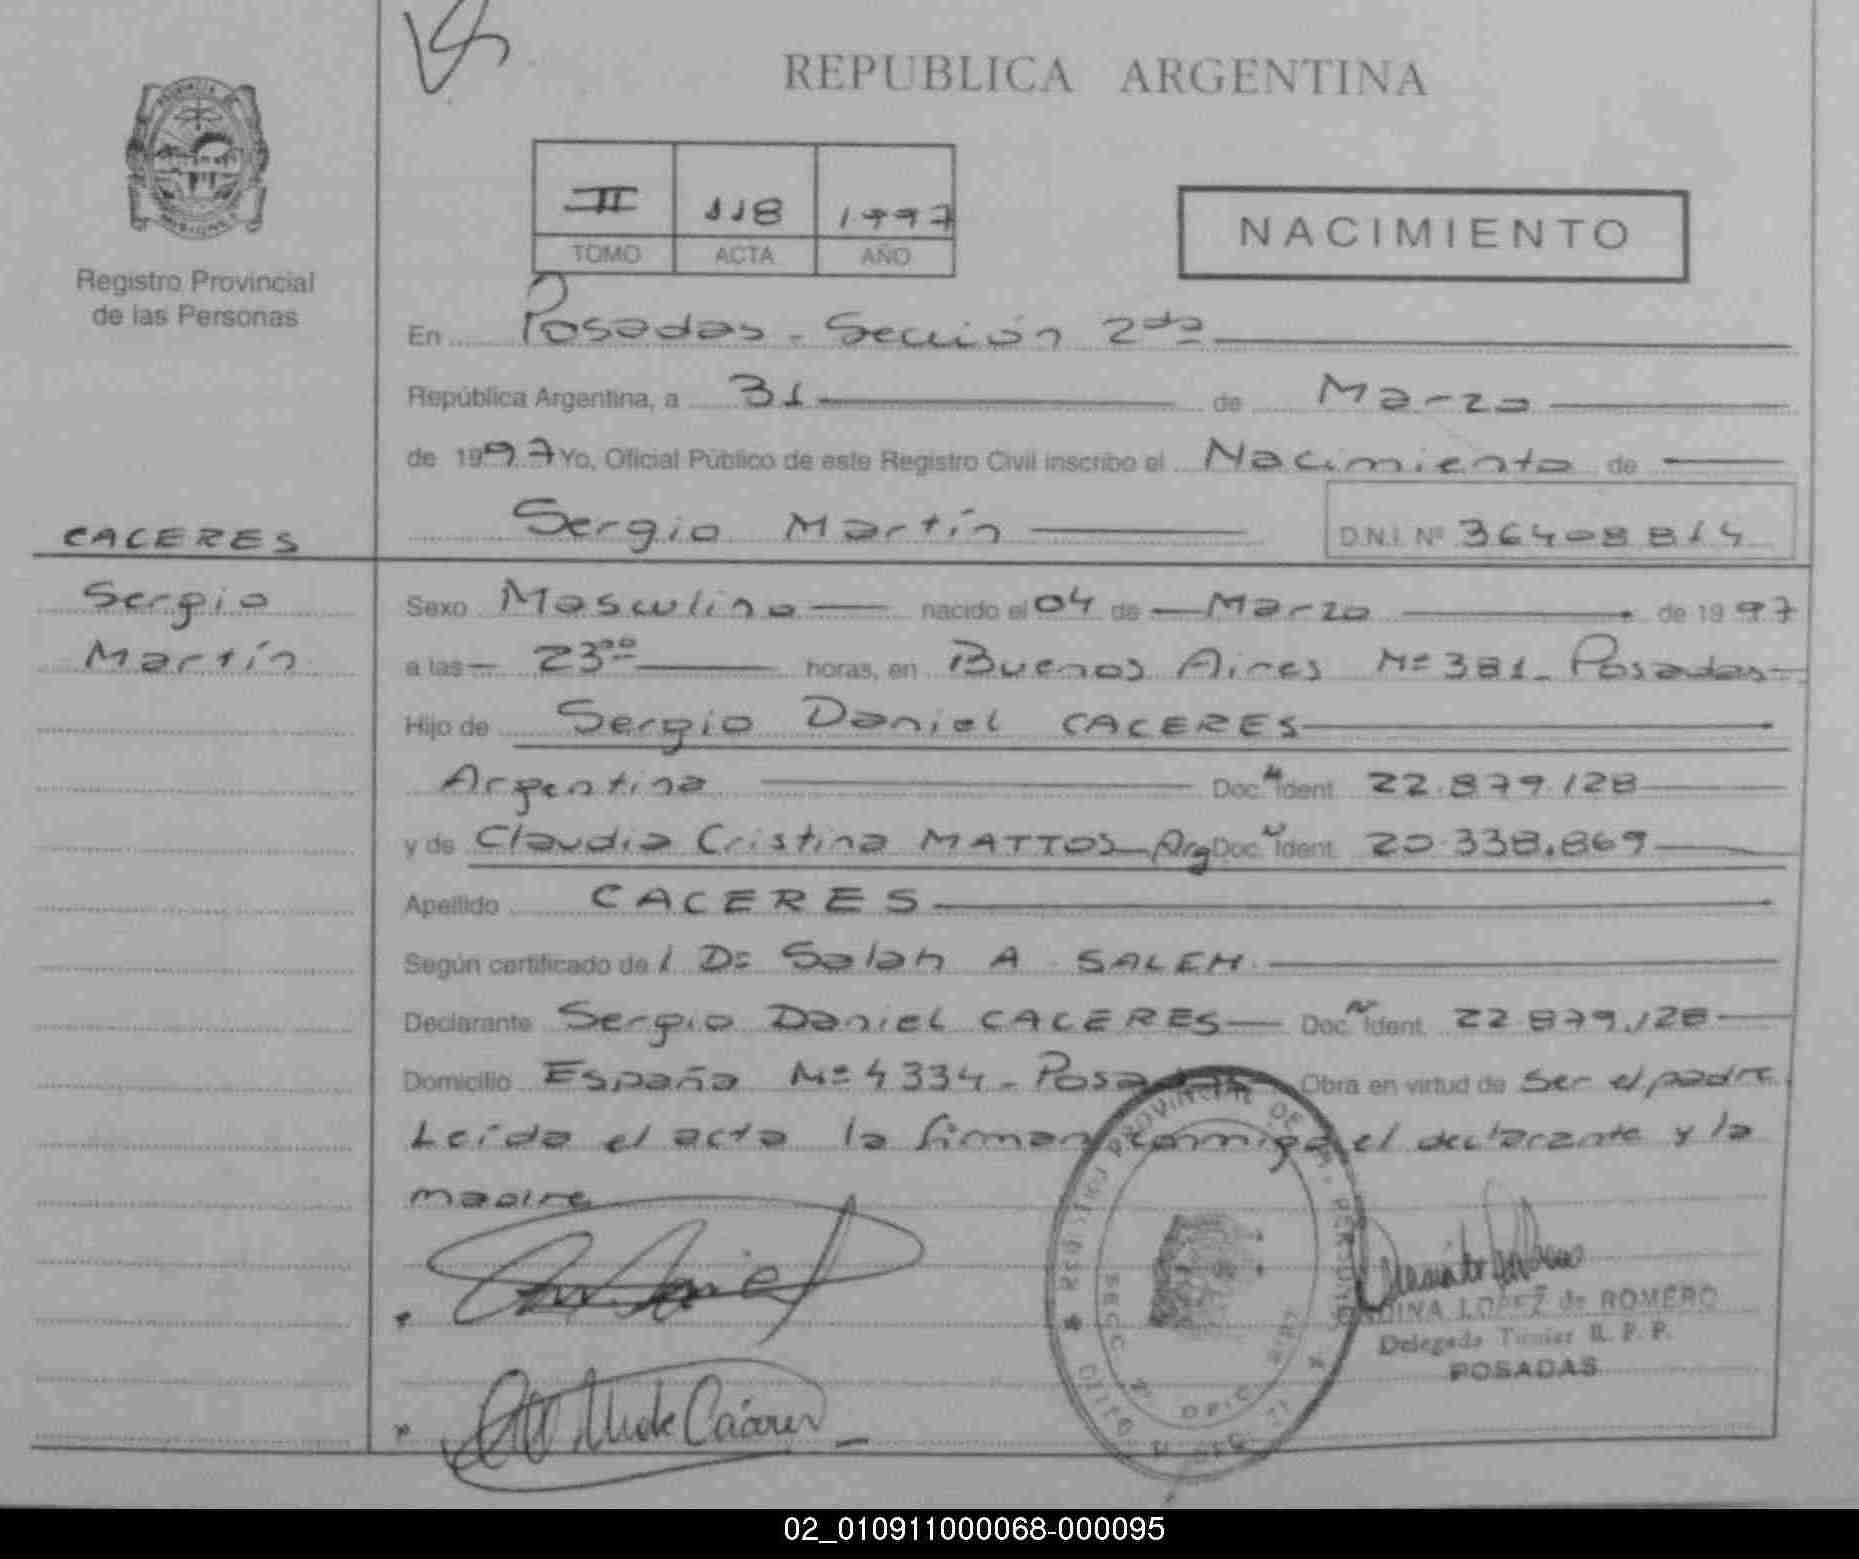 REPUBLICA ARGENTINA
II 118 1997
TOMO ACTA AÑO
NACIMIENTO
Registro Provincial
de las Personas
En Posadas - Sección 2da
República Argentina, a 31 de Marzo
de 1997 Yo, Oficial Público de este Registro Civil inscribo el Nacimiento de
Sergio Martín D.N.I. Nº 36408814
CACERES
Sergio
Martín
Sexo Masculino nacido el 04 de Marzo de 1997
a las 23ºº horas, en Buenos Aires Nº 381 - Posadas
Hijo de Sergio Daniel CACERES
Argentina Doc. Ident. 22.879.128
y de Claudia Cristina MATTOS Arg Doc. Ident. 20.338.869
Apellido CACERES
Según certificado de l Dr Salah A SALEH
Declarante Sergio Daniel CACERES Doc. Ident. 22.879.128
Domicilio España Nº 4334 - Posadas Obra en virtud de Ser el padre
Leída el acta la firman conmigo el declarante y la
madre
LOPEZ de ROMERO
Delegada Titular R. P. P.
POSADAS
02_010911000068-000095